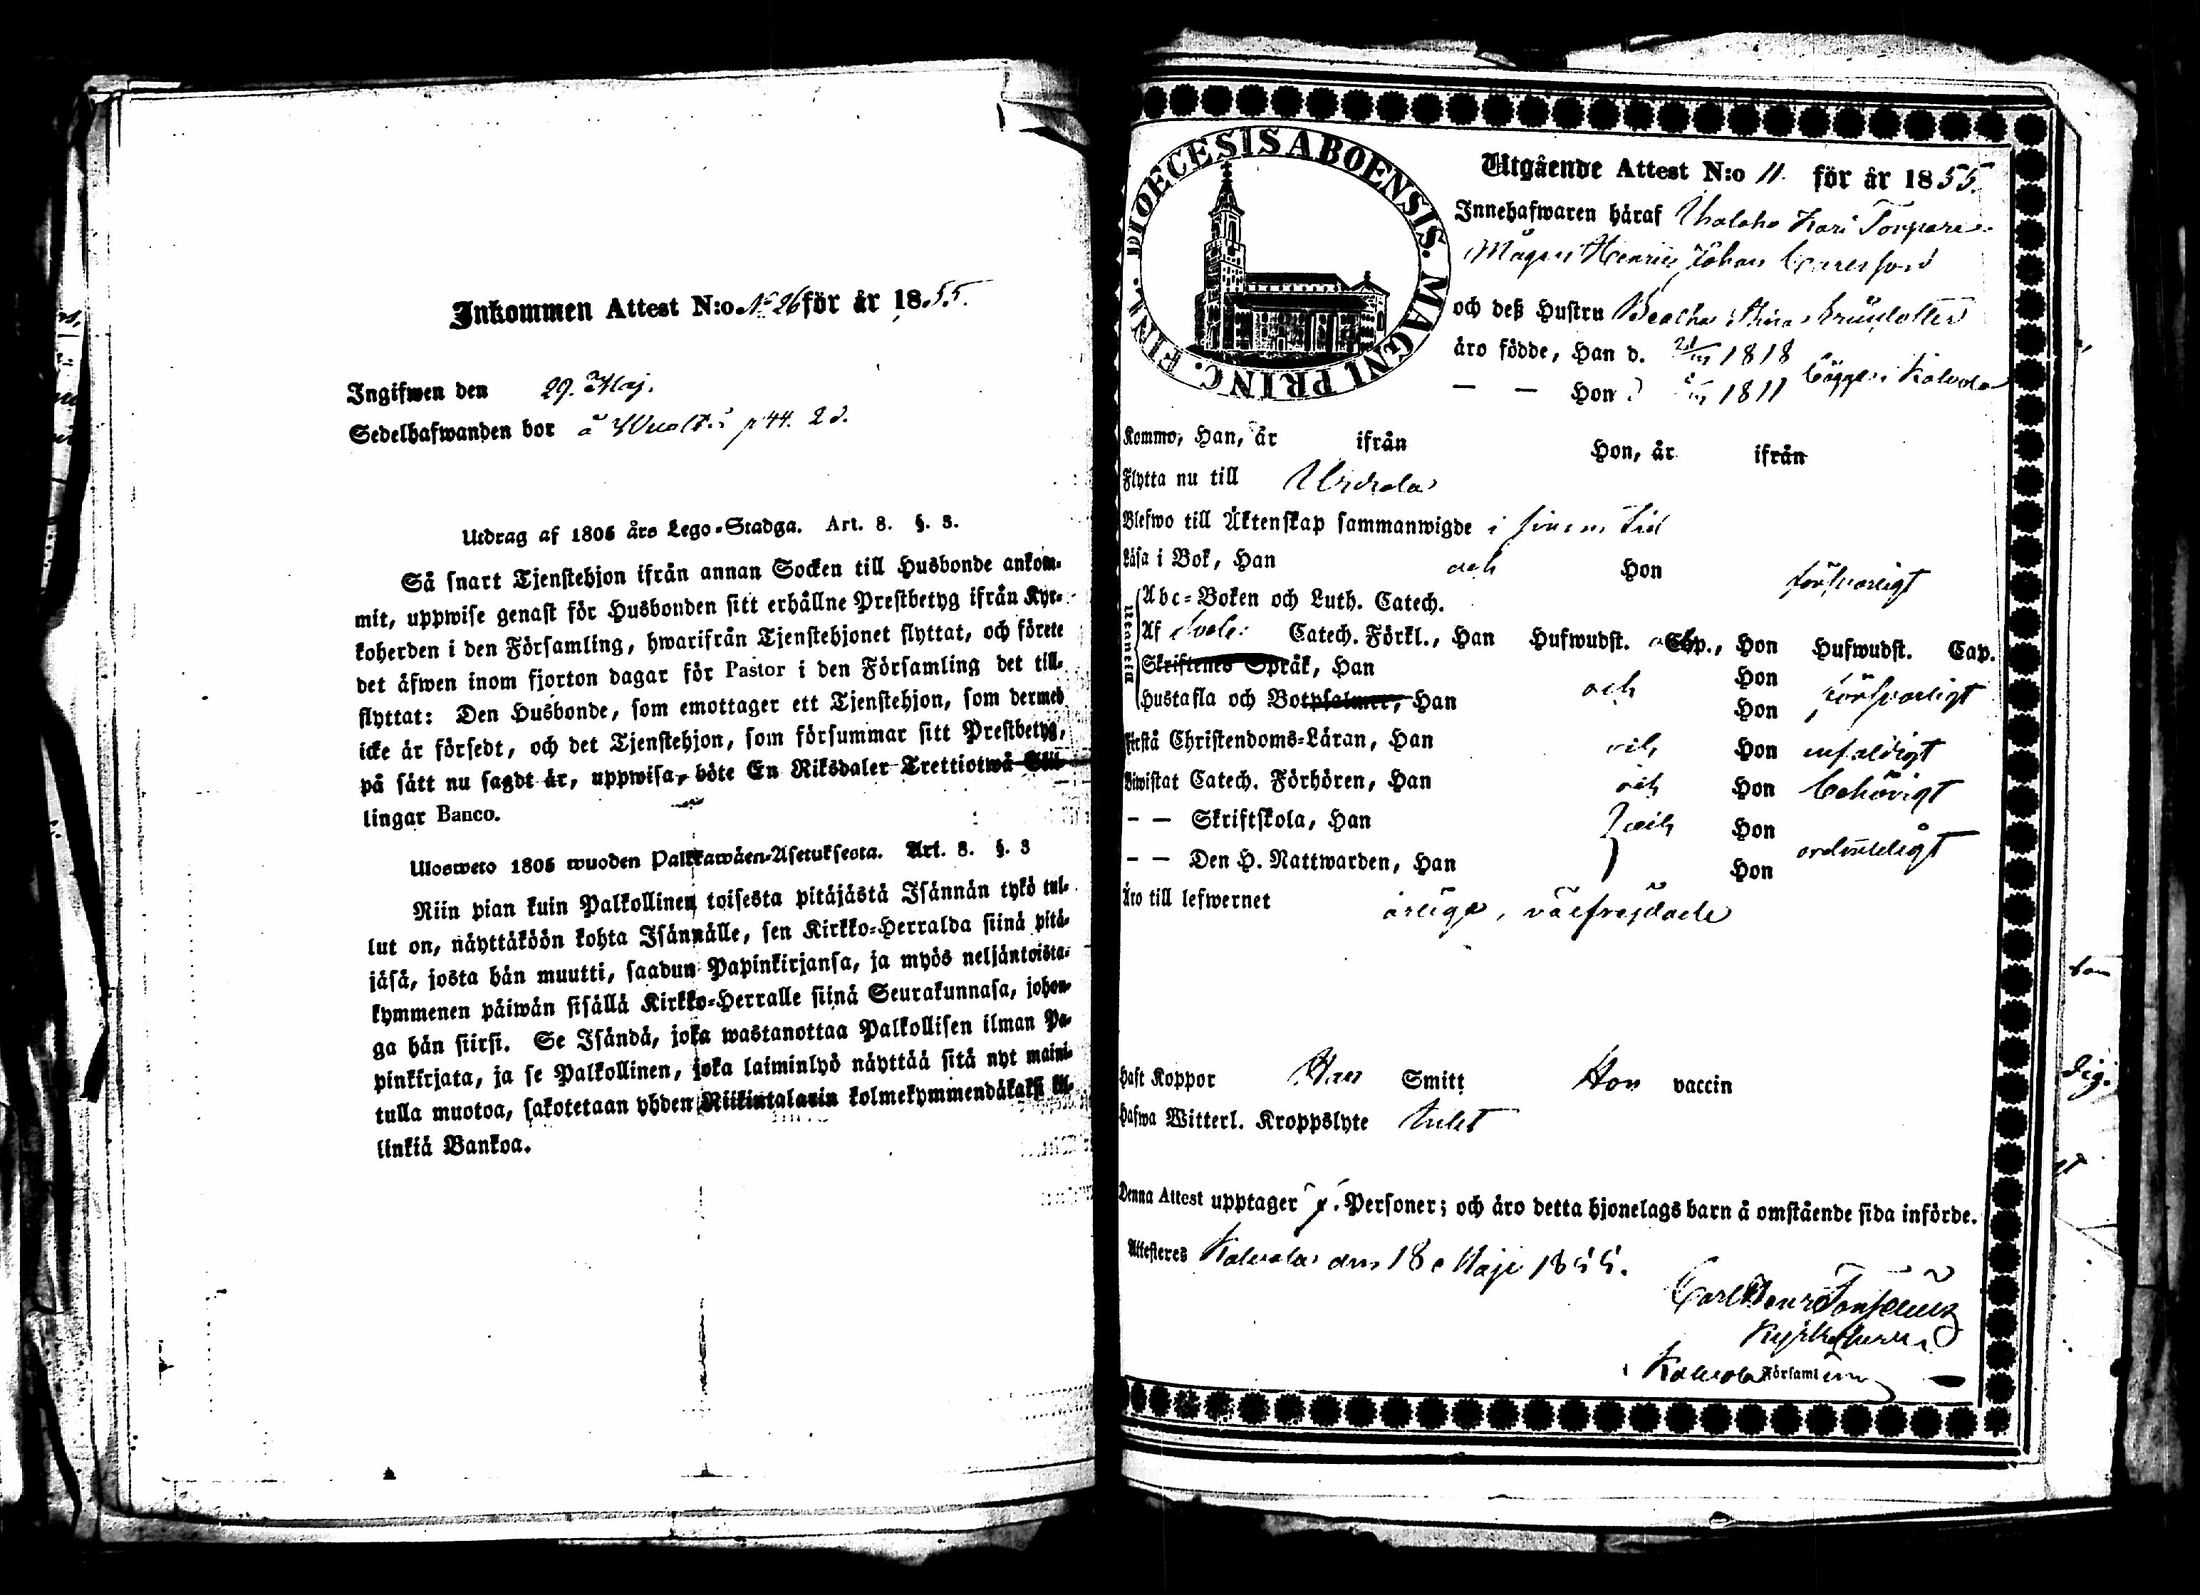 Inkommen Attest N:o N:o 26 för år 1855.
Ingifwen den 29. Maj.
Sedelhafwanden bor å p 44. 2 d.
Utdrag af 1805 års Lego-Stadga. Art. 8. §. 3.
Så snart Tjenstehjon ifrån annan Socken till Husbonde ankom-
mit, uppwise genast för Husbonden sitt erhållne Prestbetyg ifrån Kyr-
koherden i den Församling, hwarifrån Tjenstehjonet flyttat, och förete
det äfwen inom fjorton dagar för Pastor i den Församling det till-
flyttat: Den Husbonde, som emottager ett Tjenstehjon, som dermed
icke är försedt, och det Tjenstehjon, som försummar sitt Prestbetyg,
på sätt nu sagdt är, uppwisa, böte En Riksdaler Trettiotwå Skil-
lingar Banco.
Ulosweto 1805 wuoden Palkkawäen-Asetuksesta. Art. 8. §. 3
Niin pian kuin Palkollinen toisesta pitäjästä Isännän tykö tul-
lut on, näyttäköön kohta Isännälle, sen Kirkko-Herralda siinä pitä-
jäsä, josta hän muutti, saadun Papinkirjansa, ja myös neljäntoista-
kymmenen päiwän sisällä Kirkko-Herralle siinä Seurakunnasa, johon-
ga hän siirsi. Se Isändä, joka wastanottaa Palkollisen ilman Pa-
pinkirjata, ja se Palkollinen, joka laiminlyö näyttää sitä nyt maini-
tulla muotoa, sakotetaan yhden Riikintalarin kolmekymmendäkaksi kil-
linkiä Bankoa.
DIOECESIS ABOENSIS. MAGNI PRINC. FINL.
Utgående Attest N:o 11. för år 1855.
Innehafwaren häraf Kari Torpare
Mågen Henric Johan Carlsson
och deß Hustru Beatha Stina
äro födde, Han d. 1818
— — Hon d 1811 i Kalvola
Komme, Han, år ifrån Hon, år ifrån
Flytta nu till Urdiala
Blefwo till Äktenskap sammanwigde i sinom tid
Läsa i Bok, Han och Hon försvarligt
Utanläsa
Abc-Boken och Luth. Catech.
Af Svebi: Catech. Förkl., Han Hufwudst. och Cap., Hon Hufwudst. Cap.
Skriftenes Språk, Han Hon
Hustafla och Botpsalmer, Han och Hon försvarligt
Förstå Christendoms-Läran, Han och Hon enfaldigt
Biwistat Catech. Förhören, Han och Hon behörigt
— — Skriftskola, Han och Hon
— — Den H. Nattwarden, Han Hon ordentligt
Äro till lefwernet ärliga, välfrejdade
Haft Koppor Han Smitt Hon vaccin
Hafwa Witterl. Kroppslyte Intet
Denna Attest upptager Personer; och äro detta hjonelags barn å omstående sida införde.
Attesteras Kalvola den 18 Maji 1855.
Carl
Kyrkoherre
Kalvola Församling